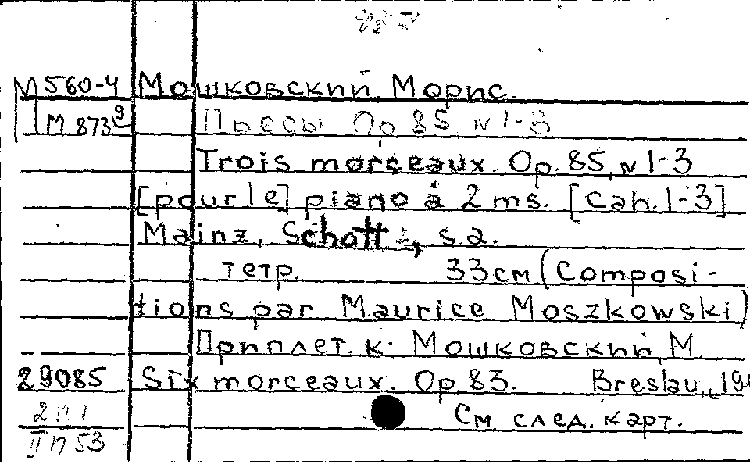 М 560-4 Мошковский, Морис.
М 873⁹ Пьесы Ор 85, N 1-3
Trois morceaux. Op. 85, N 1-3
[pour le] piano à 2 ms. [Cah. 1-3]
Mainz, Schott, s.a.
тетр. 33см (Composi-
tions par Maurice Moszkowski)
Приплет. к: Мошковский, М.
29085 Six morceaux. Op. 83. Breslau,
См след. карт.
53